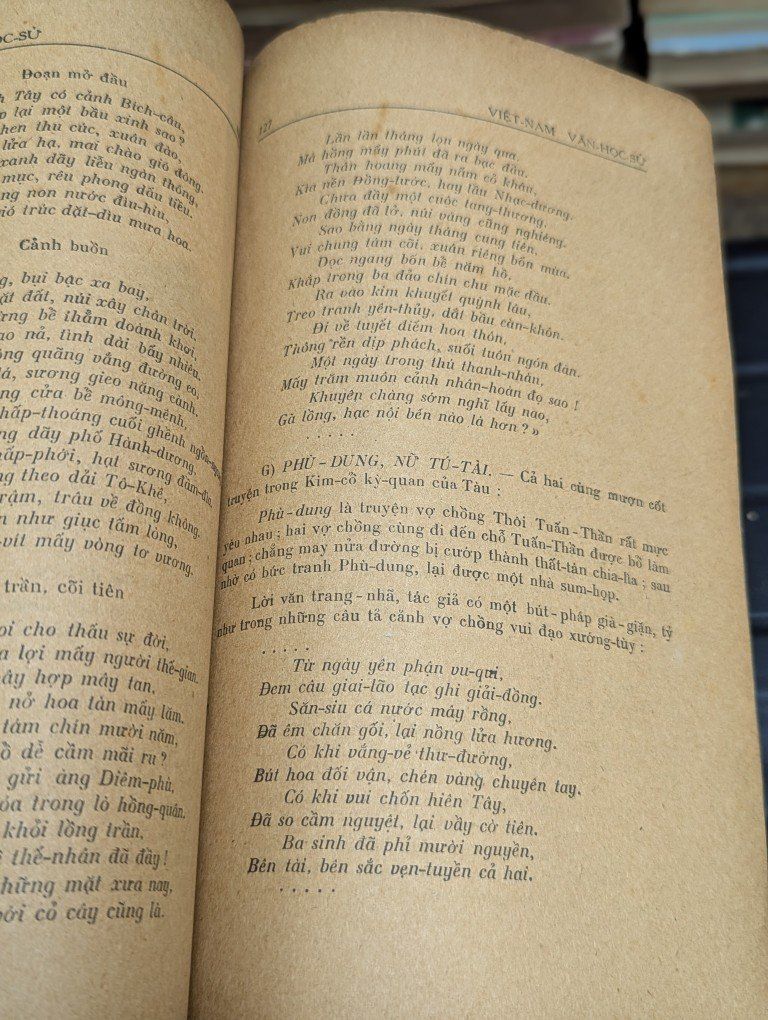 ỌC-SỬ
Đoạn mở đầu
h Tây có cảnh Bích-câu,
p lại một bầu xinh sao?
hen thu cúc, xuân đào,
lửa hạ, mai chào gió đông.
xanh dãy liễu ngàn thông,
mục, rêu phong dấu tiều.
ng non nước đìu-hiu,
ió trúc dặt-dìu mưa hoa.
Cảnh buồn
g, bụi bạc xa bay,
ặt đất, núi xây chân trời,
ừng bể thẳm doành khơi,
ao nả, tình dài bấy nhiêu.
ông quãng vắng đường eo,
lá, sương gieo nặng cành.
ng cửa bể mông-mênh,
hấp-thoáng cuối ghềnh
ng dãy phố Hành-dương,
hấp-phới, hạt sương đầm-đìa.
ng theo dải Tô-Khê,
rậm, trâu về đồng không.
n như giục tấm lòng,
-vít mấy vòng tơ vương.
trần, cõi tiên
oi cho thấu sự đời,
a lợi mấy người thế-gian.
ây hợp mây tan,
nở hoa tàn mấy lăm.
tám chín mười năm,
ồ dễ cầm mãi ru?
gửi áng Diêm-phù,
óa trong lò hồng-quân.
khỏi lồng trần,
thế-nhân đã đầy!
những mặt xưa nay,
với cỏ cây cũng là.
127 VIỆT-NAM VĂN-HỌC-SỬ
Lần lần tháng lọn ngày qua.
Má hồng mấy phút đã ra bạc đầu.
Thân hoang mấy nắm cỏ khâu,
Kìa nền Đồng-tước, hay lầu Nhạc-dương.
Chưa đầy một cuộc tang-thương,
Non đồng đã lở, núi vàng cũng nghiêng.
Sao bằng ngày tháng cung tiên,
Vui chung tám cõi, xuân riêng bốn mùa.
Dọc ngang bốn bể năm hồ,
Khắp trong ba đảo chín chu mặc dầu.
Ra vào kim khuyết quỳnh lâu,
Treo tranh yên-thủy, dắt bầu càn-khôn.
Đi về tuyết điếm hoa thôn,
Thông rền dịp phách, suối tuôn ngón đàn.
Một ngày trong thú thanh-nhàn,
Mấy trăm muôn cảnh nhân-hoàn đọ sao!
Khuyên chàng sớm nghĩ lấy nao,
Gà lồng, hạc nội bén nào là hơn?»
. . . . .
G) PHÙ-DUNG, NỮ TÚ-TÀI. — Cả hai cùng mượn cốt
truyện trong Kim-cổ kỳ-quan của Tàu:
Phù-dung là truyện vợ chồng Thôi Tuấn-Thần rất mực
yêu nhau; hai vợ chồng cùng đi đến chỗ Tuấn-Thần được bổ làm
quan; chẳng may nửa đường bị cướp thành thất-tán chia-lìa; sau
nhờ có bức tranh Phù-dung, lại được một nhà sum-họp.
Lời văn trang-nhã, tác giả có một bút-pháp già-giặn, tỷ
như trong những câu tả cảnh vợ chồng vui đạo xướng-tùy:
. . . . .
Từ ngày yên phận vu-qui,
Đem câu giai-lão tạc ghi giải-đồng.
Săn-síu cá nước mây rồng,
Đã êm chăn gối, lại nồng lửa hương.
Có khi vắng-vẻ thư-đường,
Bút hoa đối vận, chén vàng chuyên tay.
Có khi vui chốn hiên Tây,
Đã so cầm nguyệt, lại vầy cờ tiên.
Ba sinh đã phỉ mười nguyền,
Bên tài, bên sắc vẹn-tuyền cả hai.
. . . . .